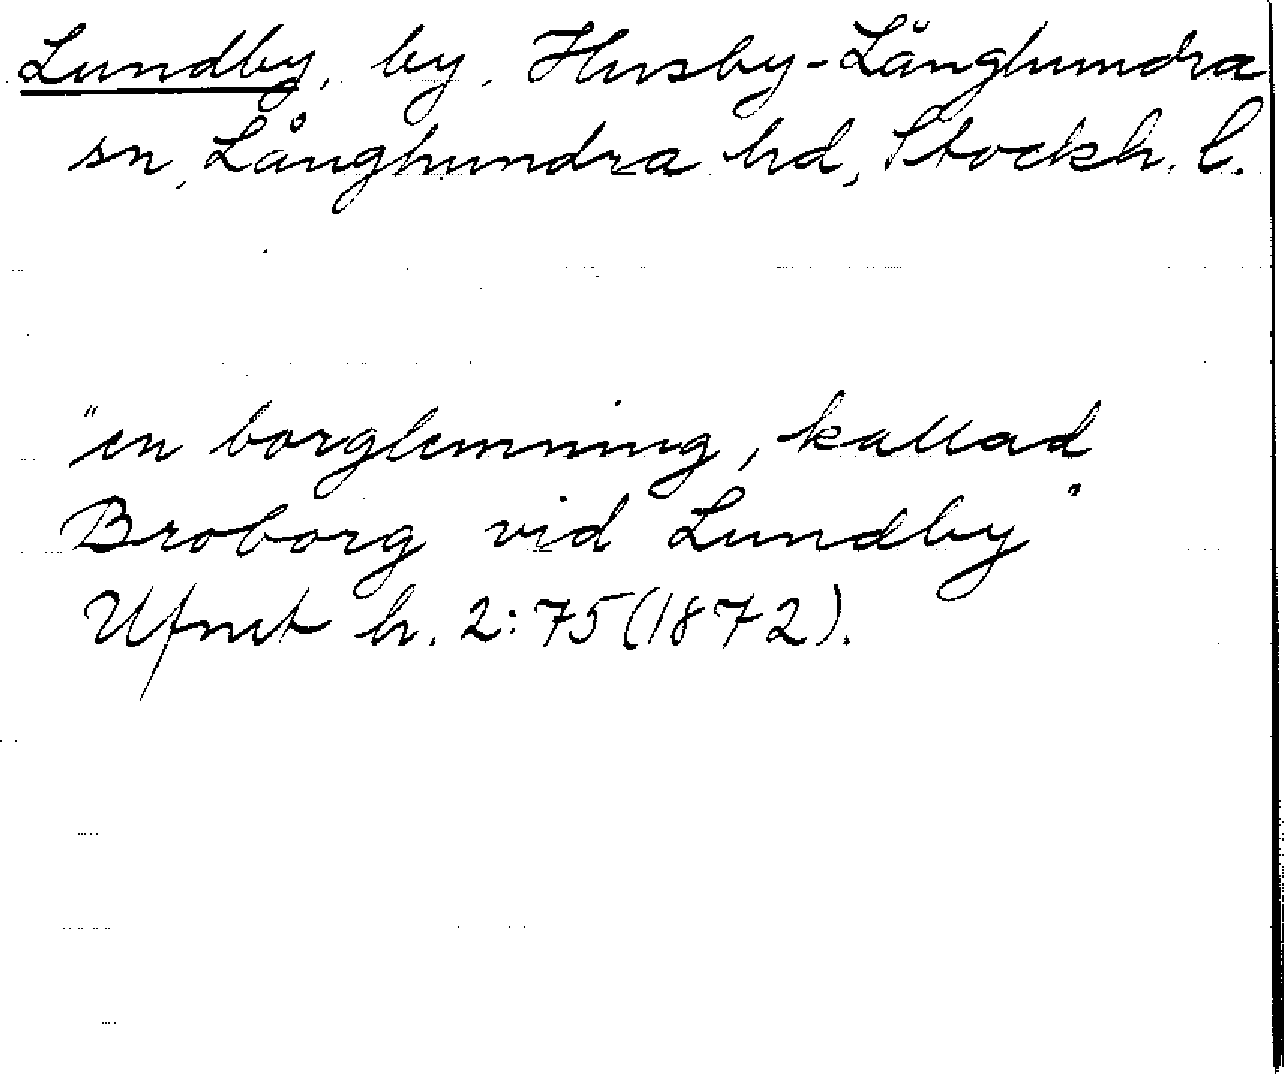 Lundby, by, Husby-Långhundra
sn, Långhundra hd, Stockh. l.
"en borglemning, kallad
Broborg vid Lundby"
Ufmt h. 2:75 (1872).